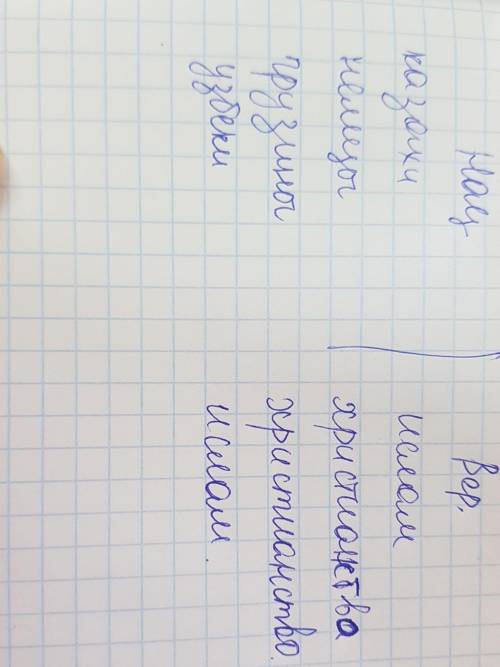 Нац Вер.
казахи ислам
немецы христианства
грузины христианство.
узбеки ислам.